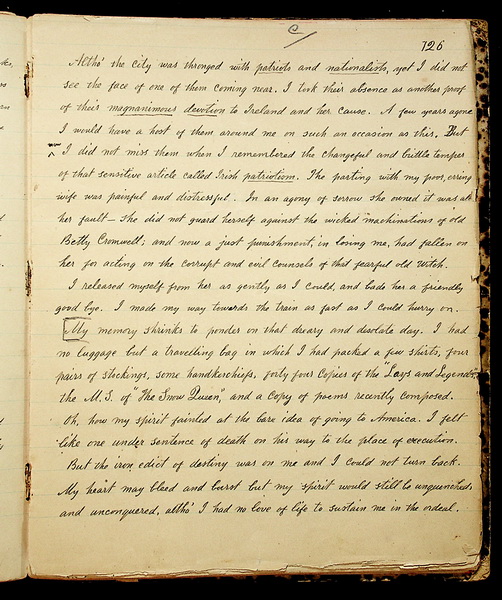 C
726
Altho' the city was thronged with patriots and nationalists, yet I did not
see the face of one of them coming near. I took their absence as another proof
of their magnanimous devotion to Ireland and her cause. A few years agone
I would have a host of them around me on such an occasion as this. But
I did not miss them when I remembered the changeful and brittle temper
of that sensitive article called Irish patriotism. The parting with my poor, erring
wife was painful and distressful. In an agony of sorrow she owned it was all
her fault — she did not guard herself against the wicked machinations of old
Betty Cromwell; and now a just punishment, in losing me, had fallen on
her for acting on the corrupt and evil counsels of that fearful old witch.
I released myself from her as gently as I could, and bade her a friendly
good bye. I made my way towards the train as fast as I could hurry on.
My memory shrinks to ponder on that dreary and desolate day. I had
no luggage but a travelling bag in which I had packed a few shirts, four
pairs of stockings, some handkerchiefs, forty four copies of the "Lays and Legends,"
the M.S. of "The Snow Queen," and a copy of poems recently composed.
Oh, how my spirit fainted at the bare idea of going to America. I felt
like one under sentence of death on his way to the place of execution.
But the iron edict of destiny was on me and I could not turn back.
My heart may bleed and burst but my spirit would still be unquenched
and unconquered, altho' I had no love of life to sustain me in the ordeal.